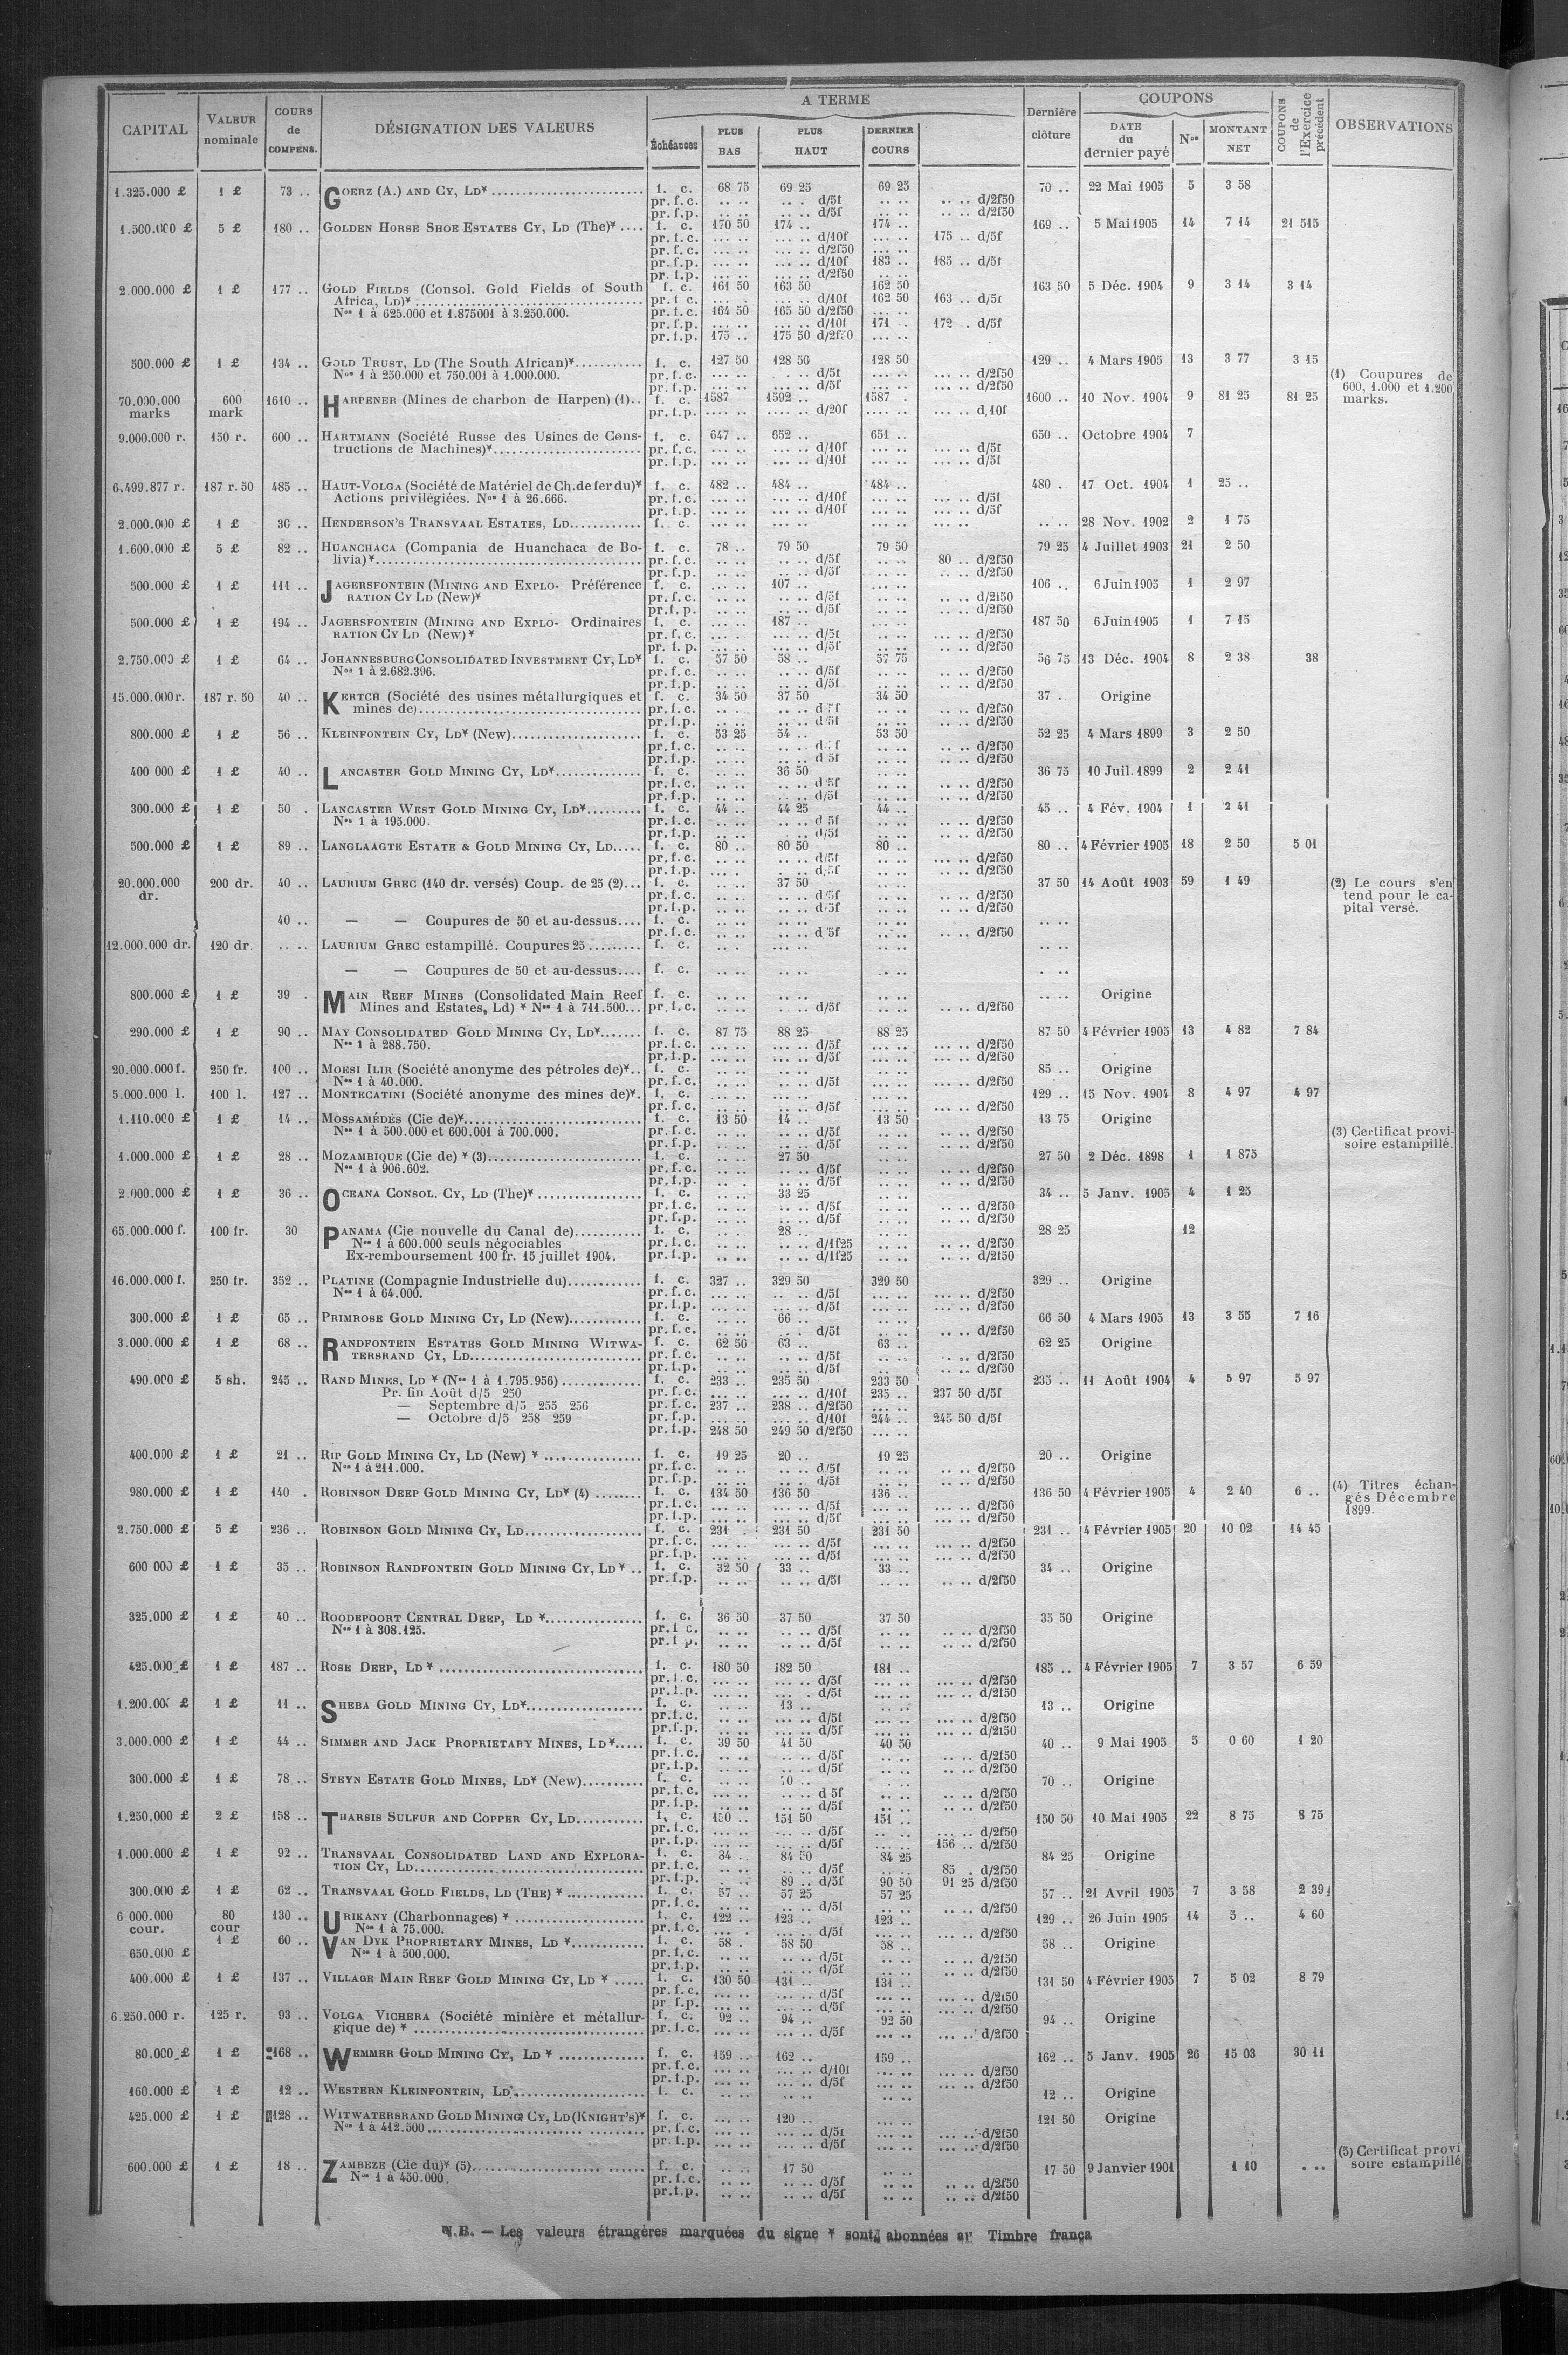 CAPITAL | VALEUR nominale | COURS de COMPENS. | DÉSIGNATION DES VALEURS | A TERME | Échéances | PLUS BAS | PLUS HAUT | DERNIER COURS | Dernière clôture | COUPONS | DATE du dernier payé | Nos | MONTANT NET | COUPONS de l'Exercice précédent | OBSERVATIONS
1.325.000 £ 1 £ 73 .. GOERZ (A.) AND CY, LD* f. c. 68 75 69 25 69 25 70 .. 22 Mai 1905 5 3 58
pr. f. c. .. .. .. . d/5f .. .. .. .. d/2f50
pr. f. p. .. .. .. .. d/5f .. .. .. .. d/2f50
1.500.000 £ 5 £ 180 .. GOLDEN HORSE SHOE ESTATES CY, LD (The)* .... f. c. 170 50 174 .. 174 .. 169 .. 5 Mai 1905 14 7 14 21 515
pr. f. c. ... .. ... .. d/10f ... .. 175 .. d/5f
pr. f. c. ... .. ... .. d/2f50 ... ..
pr. f. p. ... .. ... .. d/10f 183 .. 185 .. d/5f
pr. f. p. ... .. ... .. d/2f50 ... ..
2.000.000 £ 1 £ 177 .. GOLD FIELDS (Consol. Gold Fields of South f. c. 161 50 163 50 162 50 163 50 5 Déc. 1904 9 3 14 3 14
Africa, LD)* pr. f. c. ... . ... .. d/10f 162 50 163 .. d/5f
Nos 1 à 625.000 et 1.875001 à 3.250.000. pr. f. c. 164 50 165 50 d/2f50 ... ..
pr. f. p. ... .. ... .. d/10f 171 . 172 . d/5f
pr. f. p. 175 .. 175 50 d/2f50 ... ..
500.000 £ 1 £ 134 .. GOLD TRUST, LD (The South African)* f. c. 127 50 128 50 128 50 129 .. 4 Mars 1905 13 3 77 3 15
Nos 1 à 250.000 et 750.001 à 1.000.000. pr. f. c. ... .. d/5f ... .. ... .. d/2f50
(1) Coupures de 600, 1.000 et 1.200 marks.
pr. f. p. ... .. ... .. d/5f ... .. ... .. d/2f50
70.000.000 marks 600 mark 1610 .. HARPENER (Mines de charbon de Harpen) (1).. f. c. 1587 1592 .. 1587 . 1600 .. 10 Nov. 1904 9 81 25 81 25
pr. f. p. .... .. .... .. d/20f .... .. ... .. d, 10f
9.000.000 r. 150 r. 600 .. HARTMANN (Société Russe des Usines de Cons- f. c. 647 .. 652 .. 651 .. 650 .. Octobre 1904 7
tructions de Machines)* pr. f. c. ... .. ... .. d/10f ... .. ... .. d/5f
pr. f. p. ... .. ... .. d/10f ... .. ... .. d/5f
6.499.877 r. 187 r. 50 485 .. HAUT-VOLGA (Société de Matériel de Ch. de fer du)* f. c. 482 .. 484 .. 484 .. 480 . 17 Oct. 1904 1 25 ..
Actions privilégiées. Nos 1 à 26.666. pr. f. c. ... .. ... .. d/10f ... .. ... .. d/5f
pr. f. p. ... .. ... .. d/10f ... .. ... .. d/5f
2.000.000 £ 1 £ 30 .. HENDERSON'S TRANSVAAL ESTATES, LD f. c. .. .. .. .. .. .. .. .. 28 Nov. 1902 2 1 75
1.600.000 £ 5 £ 82 .. HUANCHACA (Compania de Huanchaca de Bo- f. c. 78 .. 79 50 79 50 79 25 4 Juillet 1903 21 2 50
livia)* pr. f. c. .. .. .. .. d/5f .. .. 80 .. d/2f50
pr. f. p. .. .. .. .. d/5f .. .. .. .. d/2f50
500.000 £ 1 £ 111 .. JAGERSFONTEIN (MINING AND EXPLO- Préférence f. c. ... .. 107 .. ... .. 106 .. 6 Juin 1905 1 2 97
RATION CY LD (New)* pr. f. c. ... .. .. .. d/5f ... .. .. .. d/2f50
pr. f. p. ... .. .. .. d/5f ... .. .. .. d/2f50
500.000 £ 1 £ 194 .. JAGERSFONTEIN (MINING AND EXPLO- Ordinaires f. c. ... .. 187 .. ... .. 187 50 6 Juin 1905 1 7 15
RATION CY LD (New)* pr. f. c. ... .. ... .. d/5f ... .. ... .. d/2f50
pr. f. p. ... .. ... .. d/5f ... .. ... .. d/2f50
2.750.000 £ 1 £ 64 .. JOHANNESBURG CONSOLIDATED INVESTMENT CY, LD* f. c. 57 50 58 .. 57 75 56 75 13 Déc. 1904 8 2 38 38
Nos 1 à 2.682.396. pr. f. c. .. .. .. .. d/5f .. .. .. .. d/2f50
pr. f. p. .. .. .. .. d/5f .. .. .. .. d/2f50
15.000.000 r. 187 r. 50 40 .. KERTCH (Société des usines métallurgiques et f. c. 34 50 37 50 34 50 37 . Origine
mines de) pr. f. c. .. . .. .. .. .. .. .. d/2f50
pr. f. p. .. .. .. .. d 5f .. .. .. .. d/2f50
800.000 £ 1 £ 56 .. KLEINFONTEIN CY, LD* (New) f. c. 53 25 54 .. 53 50 52 25 4 Mars 1899 3 2 50
pr. f. c. .. .. .. .. .. .. .. .. d/2f50
pr. f. p. .. .. .. .. d 5f .. .. .. .. d/2f50
400 000 £ 1 £ 40 .. LANCASTER GOLD MINING CY, LD* f. c. .. .. 36 50 .. .. 36 75 10 Juil. 1899 2 2 41
pr. f. c. .. .. .. .. d 5f .. .. .. .. d/2f50
pr. f. p. .. .. .. .. d/5f .. .. .. .. d/2f50
300.000 £ 1 £ 50 . LANCASTER WEST GOLD MINING CY, LD* f. c. 44 .. 44 25 44 .. 45 .. 4 Fév. 1904 1 2 41
Nos 1 à 195.000. pr. f. c. .. .. .. .. d 5f .. .. .. .. d/2f50
pr. f. p. .. .. .. .. d/5f .. .. .. .. d/2f50
500.000 £ 1 £ 89 .. LANGLAAGTE ESTATE & GOLD MINING CY, LD f. c. 80 .. 80 50 80 .. 80 .. 4 Février 1905 18 2 50 5 01
pr. f. c. .. .. .. .. d/5f .. .. ... .. d/2f50
pr. f. p. .. .. .. .. d/5f .. .. .. .. d/2f50
20.000.000 dr. 200 dr. 40 .. LAURIUM GREC (140 dr. versés) Coup. de 25 (2)... f. c. .. .. 37 50 .. .. 37 50 14 Août 1903 59 1 49
(2) Le cours s'entend pour le capital versé.
pr. f. c. .. .. .. .. d/5f .. .. .. .. d/2f50
pr. f. p. .. .. .. .. d/5f .. .. .. .. d/2f50
40 .. — — Coupures de 50 et au-dessus.... f. c. .. .. .. .. .. .. .. ..
pr. f. c. .. .. .. .. d 5f .. .. .. .. d/2f50
12.000.000 dr. 120 dr. .. .. LAURIUM GREC estampillé. Coupures 25 f. c. .. .. .. .. .. .. .. ..
— — Coupures de 50 et au-dessus.... f. c. .. .. .. .. .. .. . ..
800.000 £ 1 £ 39 . MAIN REEF MINES (Consolidated Main Reef f. c. .. .. .. .. .. .. .. .. Origine
Mines and Estates, Ld) * Nos 1 à 711.500... pr. f. c. .. .. .. .. d/5f .. .. .. .. d/2f50
290.000 £ 1 £ 90 .. MAY CONSOLIDATED GOLD MINING CY, LD* f. c. 87 75 88 25 88 25 87 50 4 Février 1905 13 4 82 7 84
Nos 1 à 288.750. pr. f. c. ... .. ... .. d/5f ... .. ... .. d/2f50
pr. f. p. ... .. ... .. d/5f ... .. ... .. d/2f50
20.000.000 f. 250 fr. 100 .. MOESI ILIR (Société anonyme des pétroles de)*.. f. c. .. .. .. .. .. .. 85 .. Origine
Nos 1 à 40.000. pr. f. c. .. .. .. .. d/5f .. .. .. .. d/2f50
5.000.000 l. 100 l. 127 .. MONTECATINI (Société anonyme des mines de)*. f. c. ... .. ... .. ... .. 129 .. 15 Nov. 1904 8 4 97 4 97
pr. f. c. ... .. ... .. d/5f ... .. ... .. d/2f50
1.110.000 £ 1 £ 14 .. MOSSAMÉDÈS (Cie de)* f. c. 13 50 14 .. 13 50 13 75 Origine
Nos 1 à 500.000 et 600.001 à 700.000. pr. f. c. .. .. .. .. d/5f .. .. .. .. d/2f50
(3) Certificat provisoire estampillé.
pr. f. p. .. .. .. .. d/5f .. .. .. .. d/2f50
1.000.000 £ 1 £ 28 .. MOZAMBIQUE (Cie de) * (3) f. c. .. .. 27 50 .. .. 27 50 2 Déc. 1898 1 1 875
Nos 1 à 906.602. pr. f. c. .. .. .. .. d/5f .. .. .. .. d/2f50
pr. f. p. .. .. .. .. d/5f .. .. .. .. d/2f50
2.000.000 £ 1 £ 36 .. OCEANA CONSOL. CY, LD (The)* f. c. .. .. 33 25 .. .. 34 .. 5 Janv. 1905 4 1 25
pr. f. c. .. .. .. .. d/5f .. .. .. .. d/2f50
pr. f. p. .. .. .. .. d/5f .. .. .. .. d/2f50
65.000.000 f. 100 fr. 30 PANAMA (Cie nouvelle du Canal de) f. c. .. . 28 .. .. . 28 25 12
Nos 1 à 600.000 seuls négociables pr. f. c. .. .. .. .. d/1f25 .. .. .. .. d/2f50
Ex-remboursement 100 fr. 15 juillet 1904. pr. f. p. .. .. .. .. d/1f25 .. .. .. .. d/2f50
16.000.000 f. 250 fr. 352 .. PLATINE (Compagnie Industrielle du) f. c. 327 .. 329 50 329 50 329 .. Origine
Nos 1 à 64.000. pr. f. c. ... .. ... .. d/5f ... .. ... .. d/2f50
pr. f. p. ... .. ... .. d/5f ... .. ... .. d/2f50
300.000 £ 1 £ 65 .. PRIMROSE GOLD MINING CY, LD (New) f. c. .. .. 66 .. .. .. 66 50 4 Mars 1905 13 3 55 7 16
pr. f. c. .. .. .. . d/5f .. .. .. .. d/2f50
3.000.000 £ 1 £ 68 .. RANDFONTEIN ESTATES GOLD MINING WITWA- f. c. 62 50 63 .. 63 .. 62 25 Origine
TERSRAND CY, LD pr. f. c. .. .. .. .. d/5f .. .. .. .. d/2f50
pr. f. p. .. .. .. .. d/5f .. .. .. .. d/2f50
490.000 £ 5 sh. 245 .. RAND MINES, LD * (Nos 1 à 1.795.956) f. c. 233 .. 235 50 233 50 235 .. 11 Août 1904 4 5 97 5 97
Pr. fin Août d/5 250 pr. f. c. ... .. ... .. d/10f 235 .. 237 50 d/5f
— Septembre d/5 255 256 pr. f. c. 237 .. 238 .. d/2f50 ... ..
— Octobre d/5 258 259 pr. f. p. ... .. ... .. d/10f 244 .. 245 50 d/5f
pr. f. p. 248 50 249 50 d/2f50 ... ..
400.000 £ 1 £ 21 .. RIP GOLD MINING CY, LD (New) * f. c. 19 25 20 .. 19 25 20 .. Origine
Nos 1 à 211.000. pr. f. c. .. .. .. .. d/5f .. .. .. .. d/2f50
pr. f. p. .. .. .. .. d/5f .. .. .. .. d/2f50
980.000 £ 1 £ 140 . ROBINSON DEEP GOLD MINING CY, LD* (4) f. c. 134 50 136 50 136 .. 136 50 4 Février 1905 4 2 40 6 ..
(4) Titres échangés Décembre 1899.
pr. f. c. ... .. ... .. d/5f ... .. ... .. d/2f50
pr. f. p. ... .. ... .. d/5f ... .. ... .. d/2f50
2.750.000 £ 5 £ 236 .. ROBINSON GOLD MINING CY, LD f. c. 231 . 231 50 231 50 231 .. 4 Février 1905 20 10 02 14 45
pr. f. c. ... .. ... .. d/5f ... .. ... .. d/2f50
pr. f. p. ... .. ... .. d/5f ... .. ... .. d/2f50
600 000 £ 1 £ 35 .. ROBINSON RANDFONTEIN GOLD MINING CY, LD * .. f. c. 32 50 33 .. 33 .. 34 .. Origine
pr. f. p. .. .. .. .. d/5f .. .. .. .. d/2f50
325.000 £ 1 £ 40 .. ROODEPOORT CENTRAL DEEP, LD * f. c. 36 50 37 50 37 50 35 50 Origine
Nos 1 à 308.125. pr. f c. .. .. .. .. d/5f .. .. .. .. d/2f50
pr. f p. .. .. .. .. d/5f .. .. .. .. d/2f50
425.000 £ 1 £ 187 .. ROSE DEEP, LD * f. c. 180 50 182 50 181 .. 185 .. 4 Février 1905 7 3 57 6 59
pr. f. c. ... .. ... .. d/5f ... .. ... .. d/2f50
pr. f. p. ... .. ... . d/5f ... .. ... .. d/2f50
1.200.000 £ 1 £ 11 .. SHEBA GOLD MINING CY, LD* f. c. .. .. 13 .. .. .. 13 .. Origine
pr. f. c. .. .. .. .. d/5f .. .. .. .. d/2f50
pr. f. p. .. .. .. .. d/5f .. .. .. .. d/2f50
3.000.000 £ 1 £ 44 .. SIMMER AND JACK PROPRIETARY MINES, LD* f. c. 39 50 41 50 40 50 40 .. 9 Mai 1905 5 0 60 1 20
pr. f. c. .. .. .. .. d/5f .. .. .. .. d/2f50
pr. f. p. .. .. .. .. d/5f .. .. .. .. d/2f50
300.000 £ 1 £ 78 .. STEYN ESTATE GOLD MINES, LD* (New) f. c. .. .. .. .. . 70 .. Origine
pr. f. c. .. .. .. .. d 5f .. .. .. .. d/2f50
pr. f. p. .. .. .. .. d/5f .. .. .. .. d/2f50
1.250,000 £ 2 £ 158 .. THARSIS SULFUR AND COPPER CY, LD f. c. 150 .. 151 50 151 .. 150 50 10 Mai 1905 22 8 75 8 75
pr. f. c. ... .. ... .. d/5f ... .. ... .. d/2f50
pr. f. p. ... .. ... .. d/5f ... .. 156 .. d/2f50
1.000.000 £ 1 £ 92 .. TRANSVAAL CONSOLIDATED LAND AND EXPLORA- f. c. 84 50 84 25 84 25 Origine
TION CY, LD pr. f. c. .. .. .. .. d/5f .. .. 85 . d/2f50
pr. f. p. .. .. 89 .. d/5f 90 50 91 25 d/2f50
300.000 £ 1 £ 62 .. TRANSVAAL GOLD FIELDS, LD (THE) * f. c. 57 .. 57 25 57 25 57 .. 21 Avril 1905 7 3 58 2 39
pr. f. c. .. .. .. .. d/5f .. .. .. .. d/2f50
6 000.000 cour. 80 cour 130 .. URIKANY (Charbonnages) * f. c. 122 .. 123 .. 123 .. 129 .. 26 Juin 1905 14 5 .. 4 60
Nos 1 à 75.000. pr. f. c. ... . ... .. d/5f ... .. ... .. d/2f50
650.000 £ 1 £ 60 .. VAN DYK PROPRIETARY MINES, LD * f. c. 58 . 58 50 58 .. 58 .. Origine
Nos 1 à 500.000. pr. f. c. .. .. .. .. d/5f .. .. .. .. d/2f50
pr. f. p. .. .. .. .. d/5f .. .. .. .. d/2f50
400.000 £ 1 £ 137 .. VILLAGE MAIN REEF GOLD MINING CY, LD * f. c. 130 50 131 .. 131 .. 131 50 4 Février 1905 7 5 02 8 79
pr. f. c. ... .. ... .. d/5f ... .. ... .. d/2f50
pr. f. p. ... .. ... .. d/5f ... .. ... .. d/2f50
6.250.000 r. 125 r. 93 .. VOLGA VICHERA (Société minière et métallur- f. c. 92 .. 94 .. 92 50 94 .. Origine
gique de) * pr. f. c. ... .. ... .. d/5f ... .. ... .. d/2f50
80.000 £ 1 £ 168 .. WEMMER GOLD MINING CY, LD * f. c. 159 .. 162 .. 159 .. 162 .. 5 Janv. 1905 26 15 03 30 11
pr. f. c. ... .. ... .. d/10f ... .. ... .. d/2f50
pr. f. p. ... .. ... .. d/5f ... .. ... .. d/2f50
160.000 £ 1 £ 12 .. WESTERN KLEINFONTEIN, LD f. c. .. .. .. .. .. .. 12 .. Origine
425.000 £ 1 £ 128 .. WITWATERSRAND GOLD MINING CY, LD (KNIGHT'S)* f. c. ... .. 120 .. ... .. 121 50 Origine
Nos 1 à 412.500 pr. f. c. ... .. ... .. d/5f ... .. ... .. d/2f50
pr. f. p. ... .. ... .. d/5f ... .. ... .. d/2f50
600.000 £ 1 £ 18 .. ZAMBEZE (Cie du)* (5) f. c. .. .. 17 50 .. .. 17 50 9 Janvier 1901 1 10 . ..
(5) Certificat provisoire estampillé
Nos 1 à 450.000. pr. f. c. .. .. .. .. d/5f .. .. .. .. d/2f50
pr. f. p. .. .. .. .. d/5f .. .. .. .. d/2f50
N.B. — Les valeurs étrangères marquées du signe * sont abonnées Timbre frança